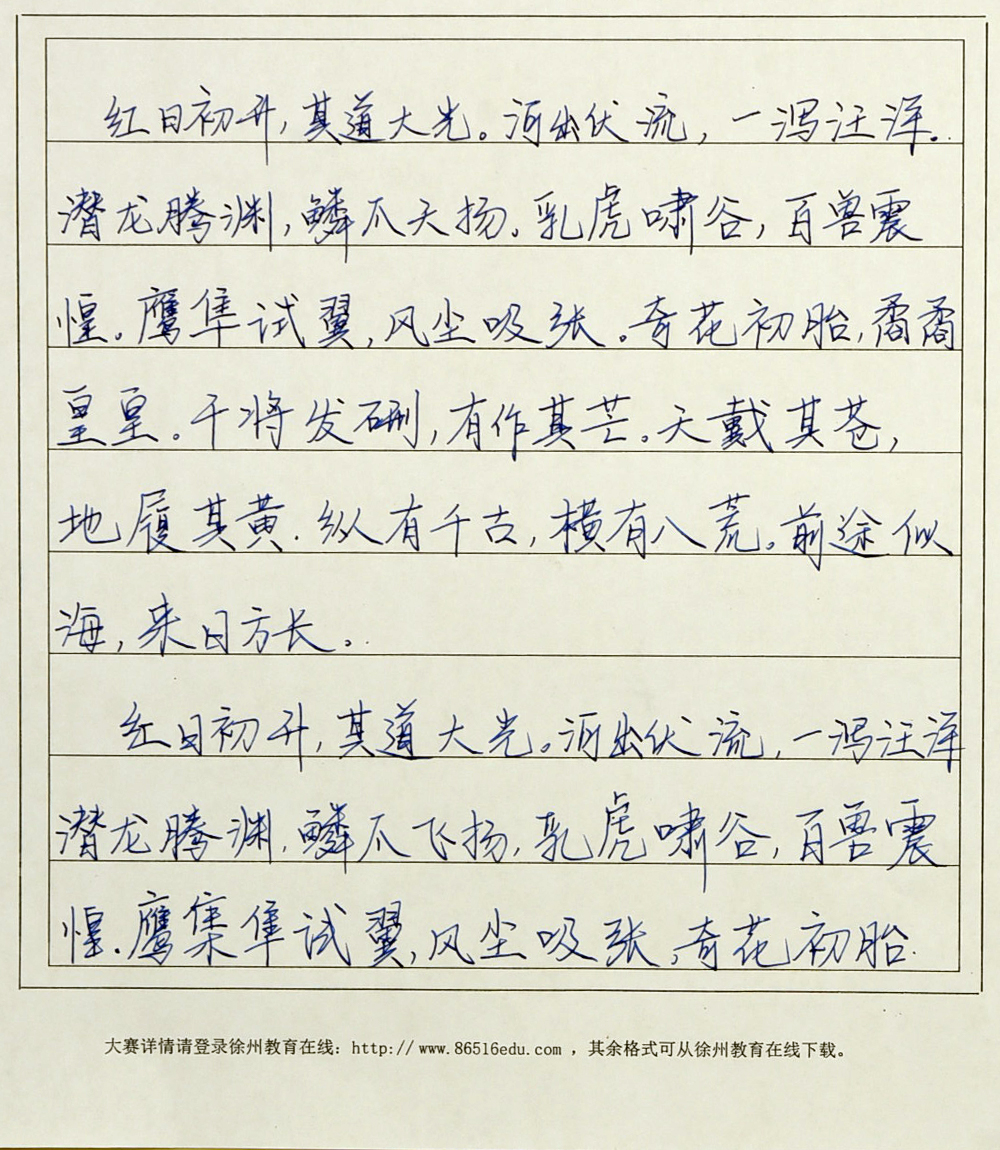 红日初升，其道大光。河出伏流，一泻汪洋。
潜龙腾渊，鳞爪天扬。乳虎啸谷，百兽震
惶。鹰隼试翼，风尘吸张。奇花初胎，矞矞
皇皇。干将发硎，有作其芒。天戴其苍，
地履其黄。纵有千古，横有八荒。前途似
海，来日方长。
红日初升，其道大光。河出伏流，一泻汪洋
潜龙腾渊，鳞爪飞扬，乳虎啸谷，百兽震
惶。鹰集隼试翼，风尘吸张，奇花初胎.
大赛详情请登录徐州教育在线：http://www.86516edu.com ，其余格式可从徐州教育在线下载。